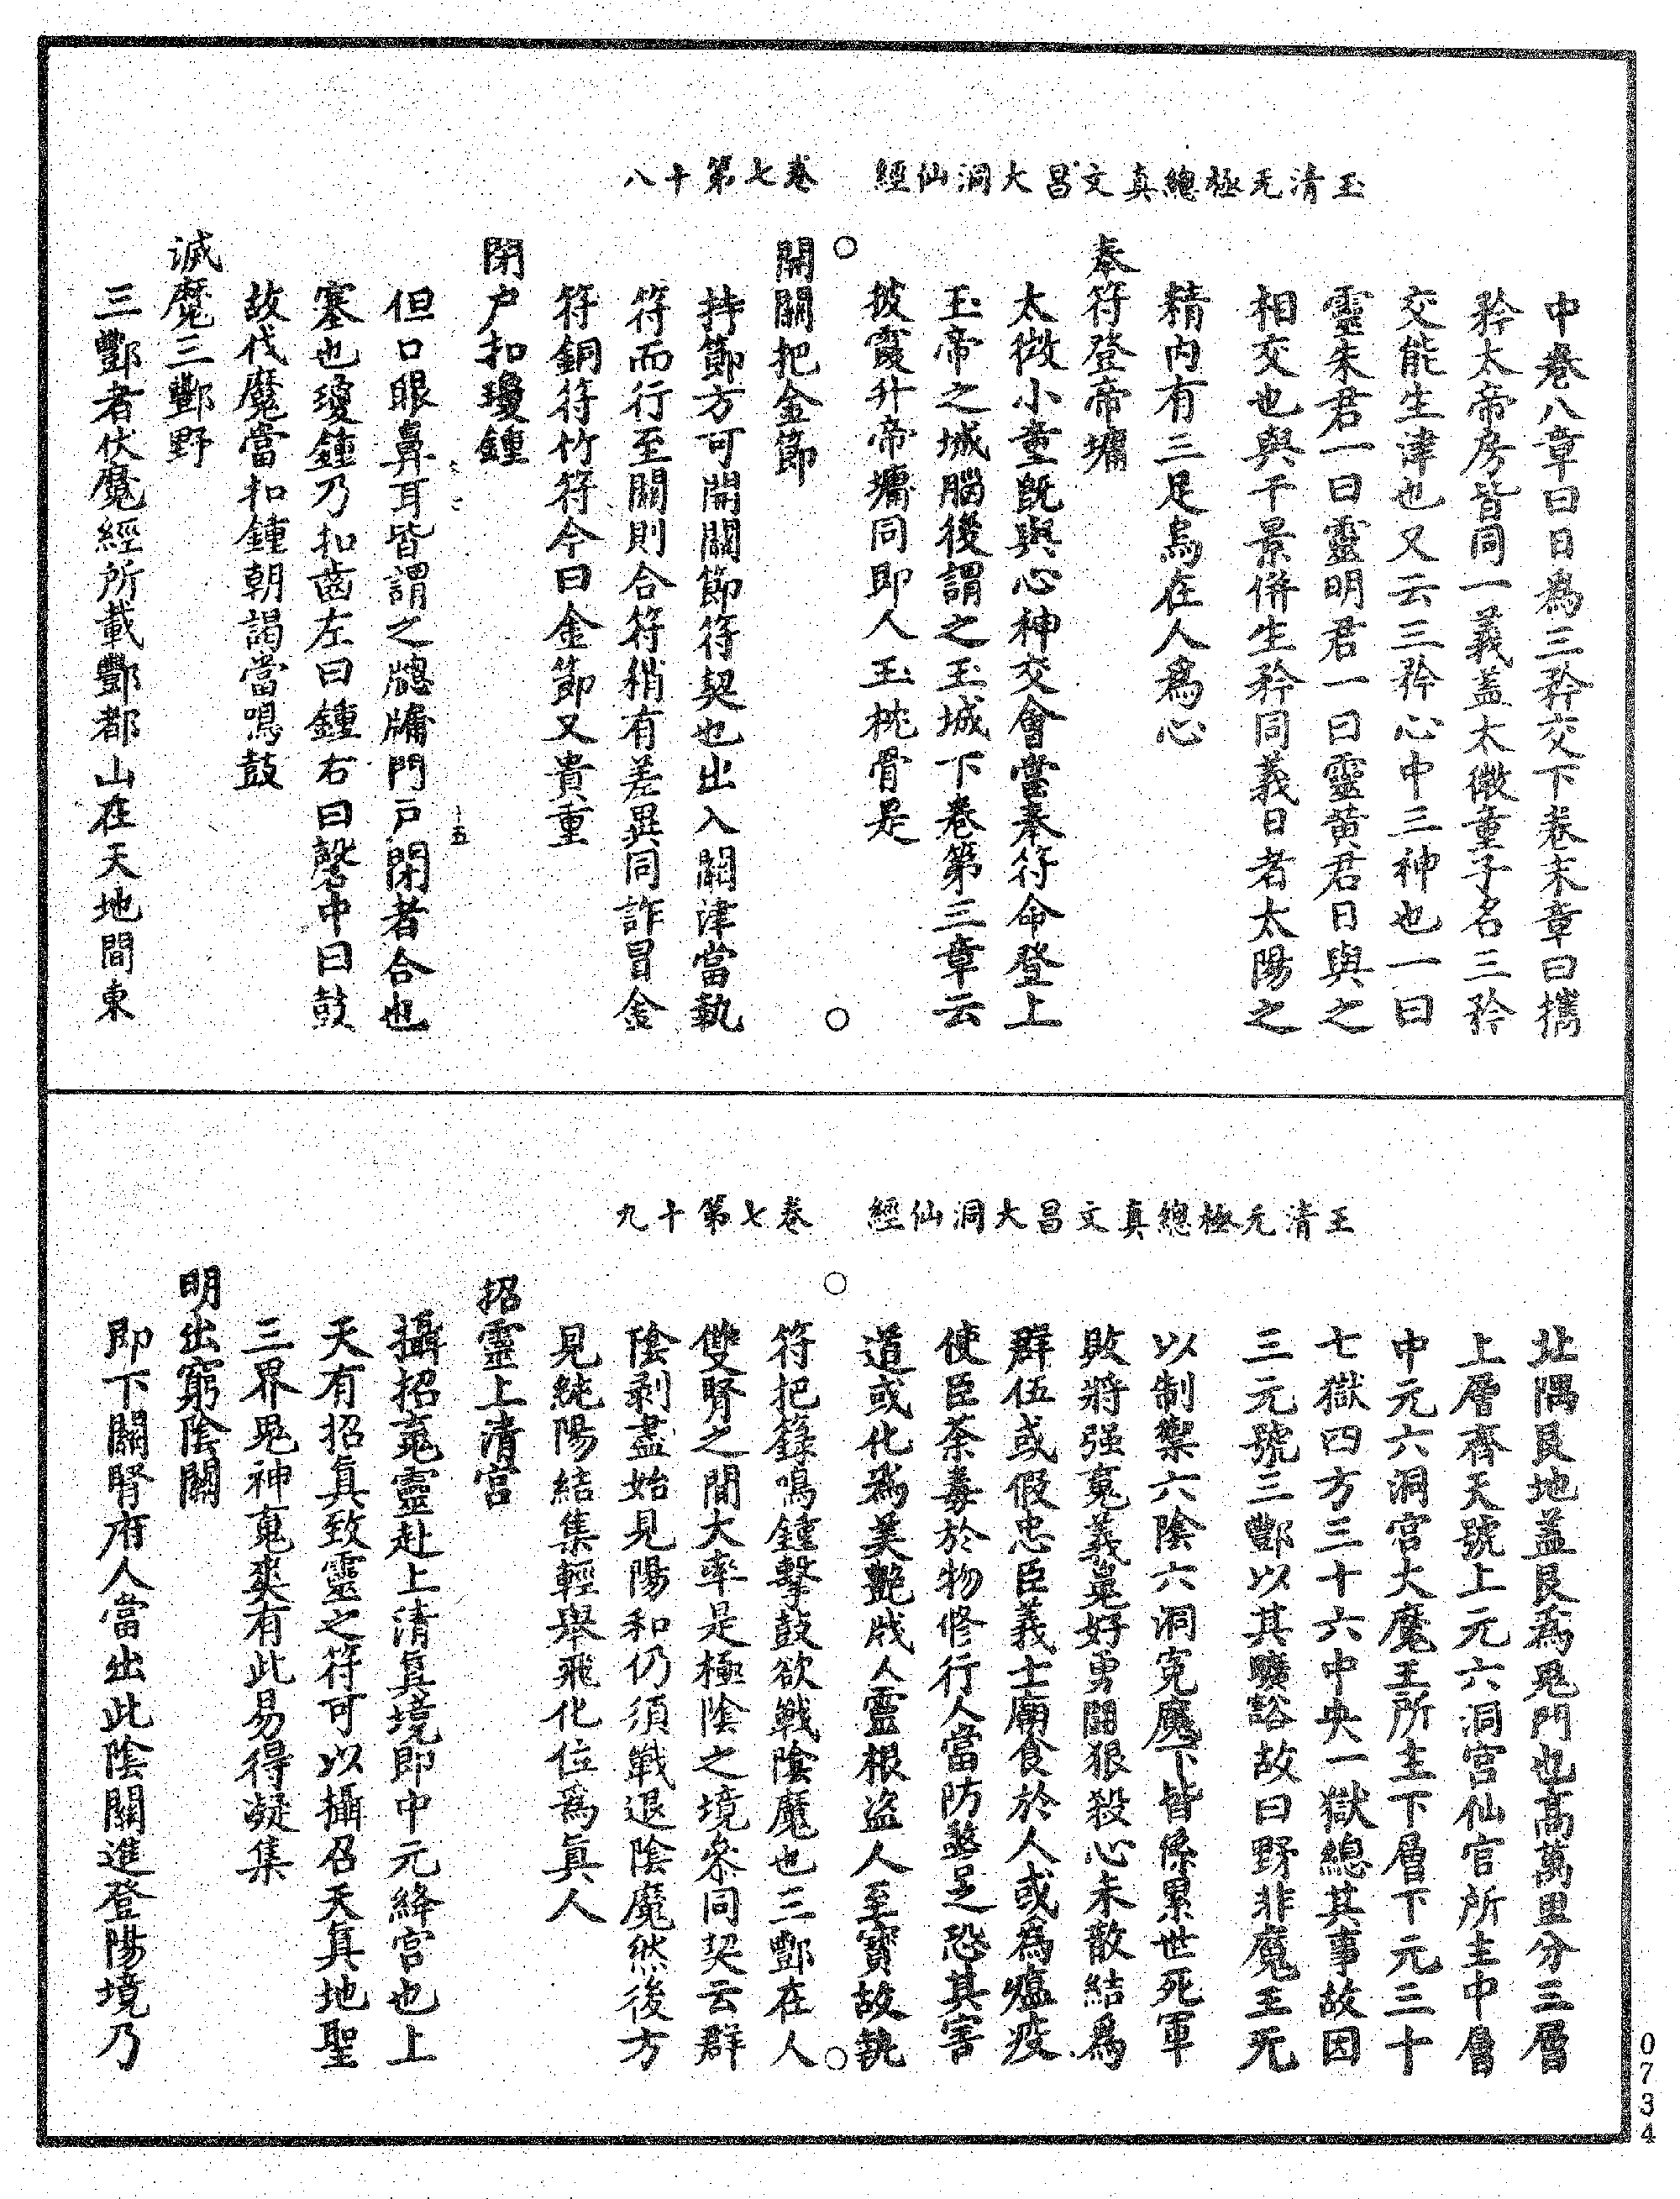 玉清无極總真文昌大洞仙經　卷七第十八
中卷八章曰日為三矜交下卷末章曰攜
矜太帝房皆同一義蓋太微童子名三矜
交能生津也又云三矜心中三神也一曰
靈朱君一曰靈明君一曰靈黃君日與之
相交也與千景併生矜同義日者太陽之
精內有三足烏在人為心
奉符登帝墉
太微小童既與心神交會當奉符命登上
玉帝之城腦後謂之玉城下卷第三章云
披霞升帝墉同即人玉枕骨是
開關把金節
持節方可開關節符契也出入關津當執
符而行至關則合符稍有差異同詐冒金
符銅符竹符今曰金節又貴重
閉户扣瓊鍾
但口眼鼻耳皆謂之牕牖門户閉者合也
塞也瓊鍾乃扣齒左曰鍾右曰磬中曰鼓
故伐魔當扣鍾朝謁當鳴鼓
滅魔三酆野
三酆者伏魔經所載酆都山在天地間東
十五
玉清无極總真文昌大洞仙經　卷七第十九
北隅艮地蓋艮為鬼門也高萬里分三層
上層齊天號上元六洞宮仙官所主中層
中元六洞宮大魔王所主下層下元三十
七獄四方三十六中央一獄總其事故因
三元號三酆以其曠豁故曰野非魔王无
以制禦六陰六洞寃魔下皆係累世死軍
敗將强䰟義鬼好勇鬪狠殺心未散結為
群伍或假忠臣義士廟食於人或為瘟疫
使臣荼毒於物修行人當防憝足恐其害
道或化為美艷戕人靈根盜人至寶故執
符把籙鳴鍾擊鼓欲戰陰魔也三酆在人
雙腎之間大率是極陰之境叅同契云群
陰剥盡始見陽和仍須戰退陰魔然後方
見純陽結集輕舉飛化位為真人
招靈上清宮
攝招䰟靈赴上清真境即中元絳宮也上
天有招真致靈之符可以攝召天真地聖
三界鬼神䰟爽有此易得凝集
明出窮陰關
即下關腎府人當出此陰關進登陽境乃
0734